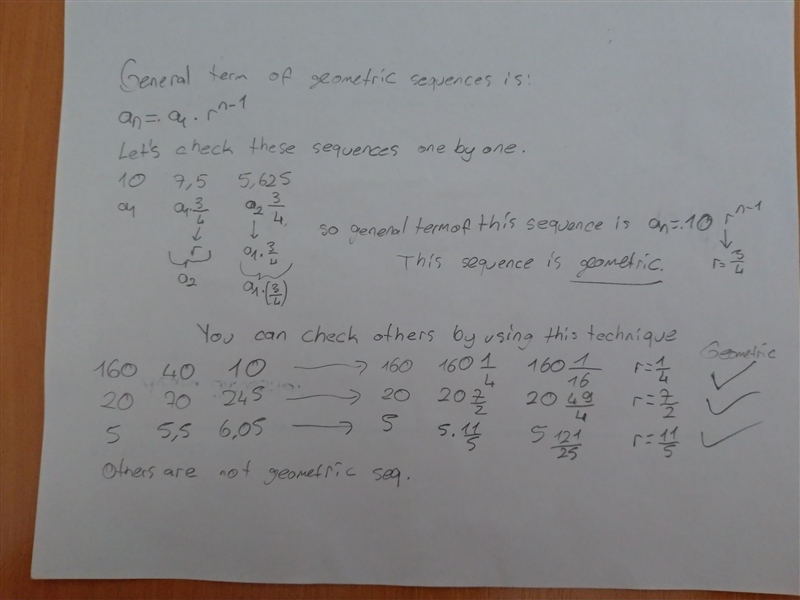 General term of geometric sequences is:
an = a1 . r^n-1
Let's check these sequences one by one.
10 7,5 5,625
a1 a1.3/4 a2 3/4
r a1.3/4
a2 a1.(3/4)
so general term of this sequence is an = 10 r^n-1
This sequence is geometric. r=3/4
You can check others by using this technique
Geometric
160 40 10 → 160 160 1/4 160 1/16 r=1/4 ✓
20 70 245 → 20 20 7/2 20 49/4 r=7/2 ✓
5 5,5 6,05 → 5 5.11/5 5 121/25 r=11/5 ✓
Others are not geometric seq.